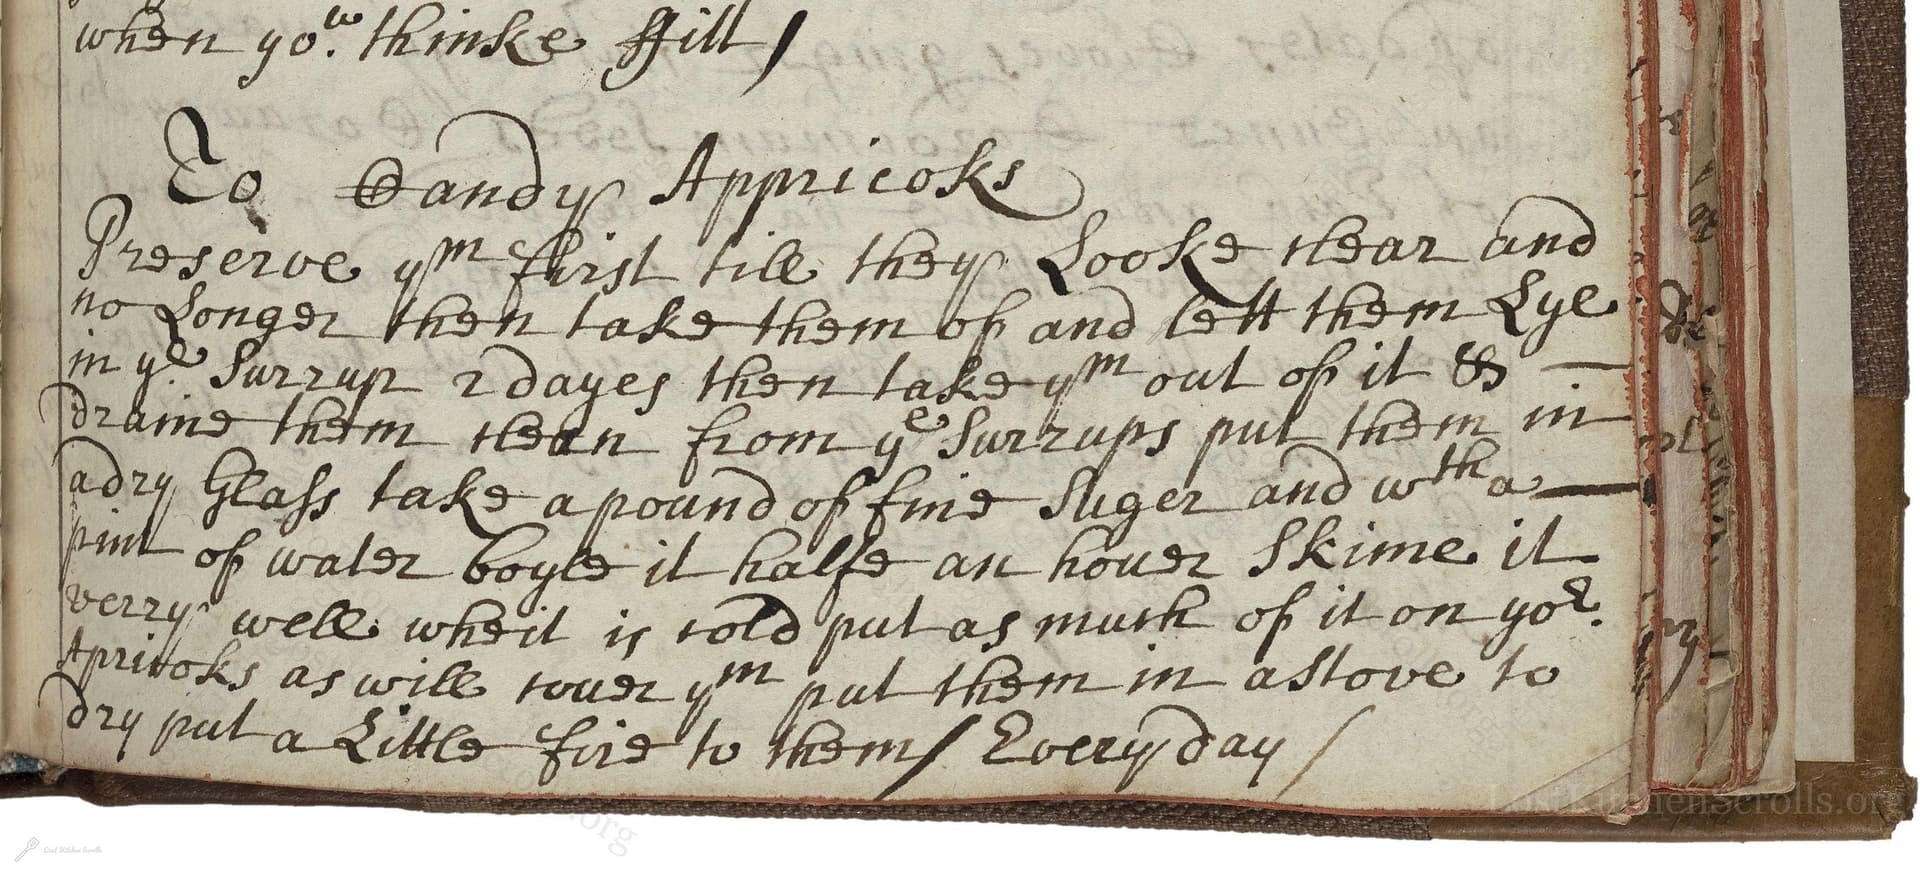 when you. thinke ffitt /
To Candy Appricoks
Preserve ym first till they Looke clear and
no Longer then take them of and lett them Lye
in ye. Surrup 2 dayes then take ym out of it & —
draine them clean from ye Surrups put them in
a dry Glass take a pound of fine Suger and wth a —
pint of water boyle it halfe an houer Skime it
verry well wheit is cold put as much of it on yor.
Apricoks as will couer ym put them in a stove to
dry put a Little fire to them / Every day /
LostKitchenScrolls.org
Lost Kitchen Scrolls